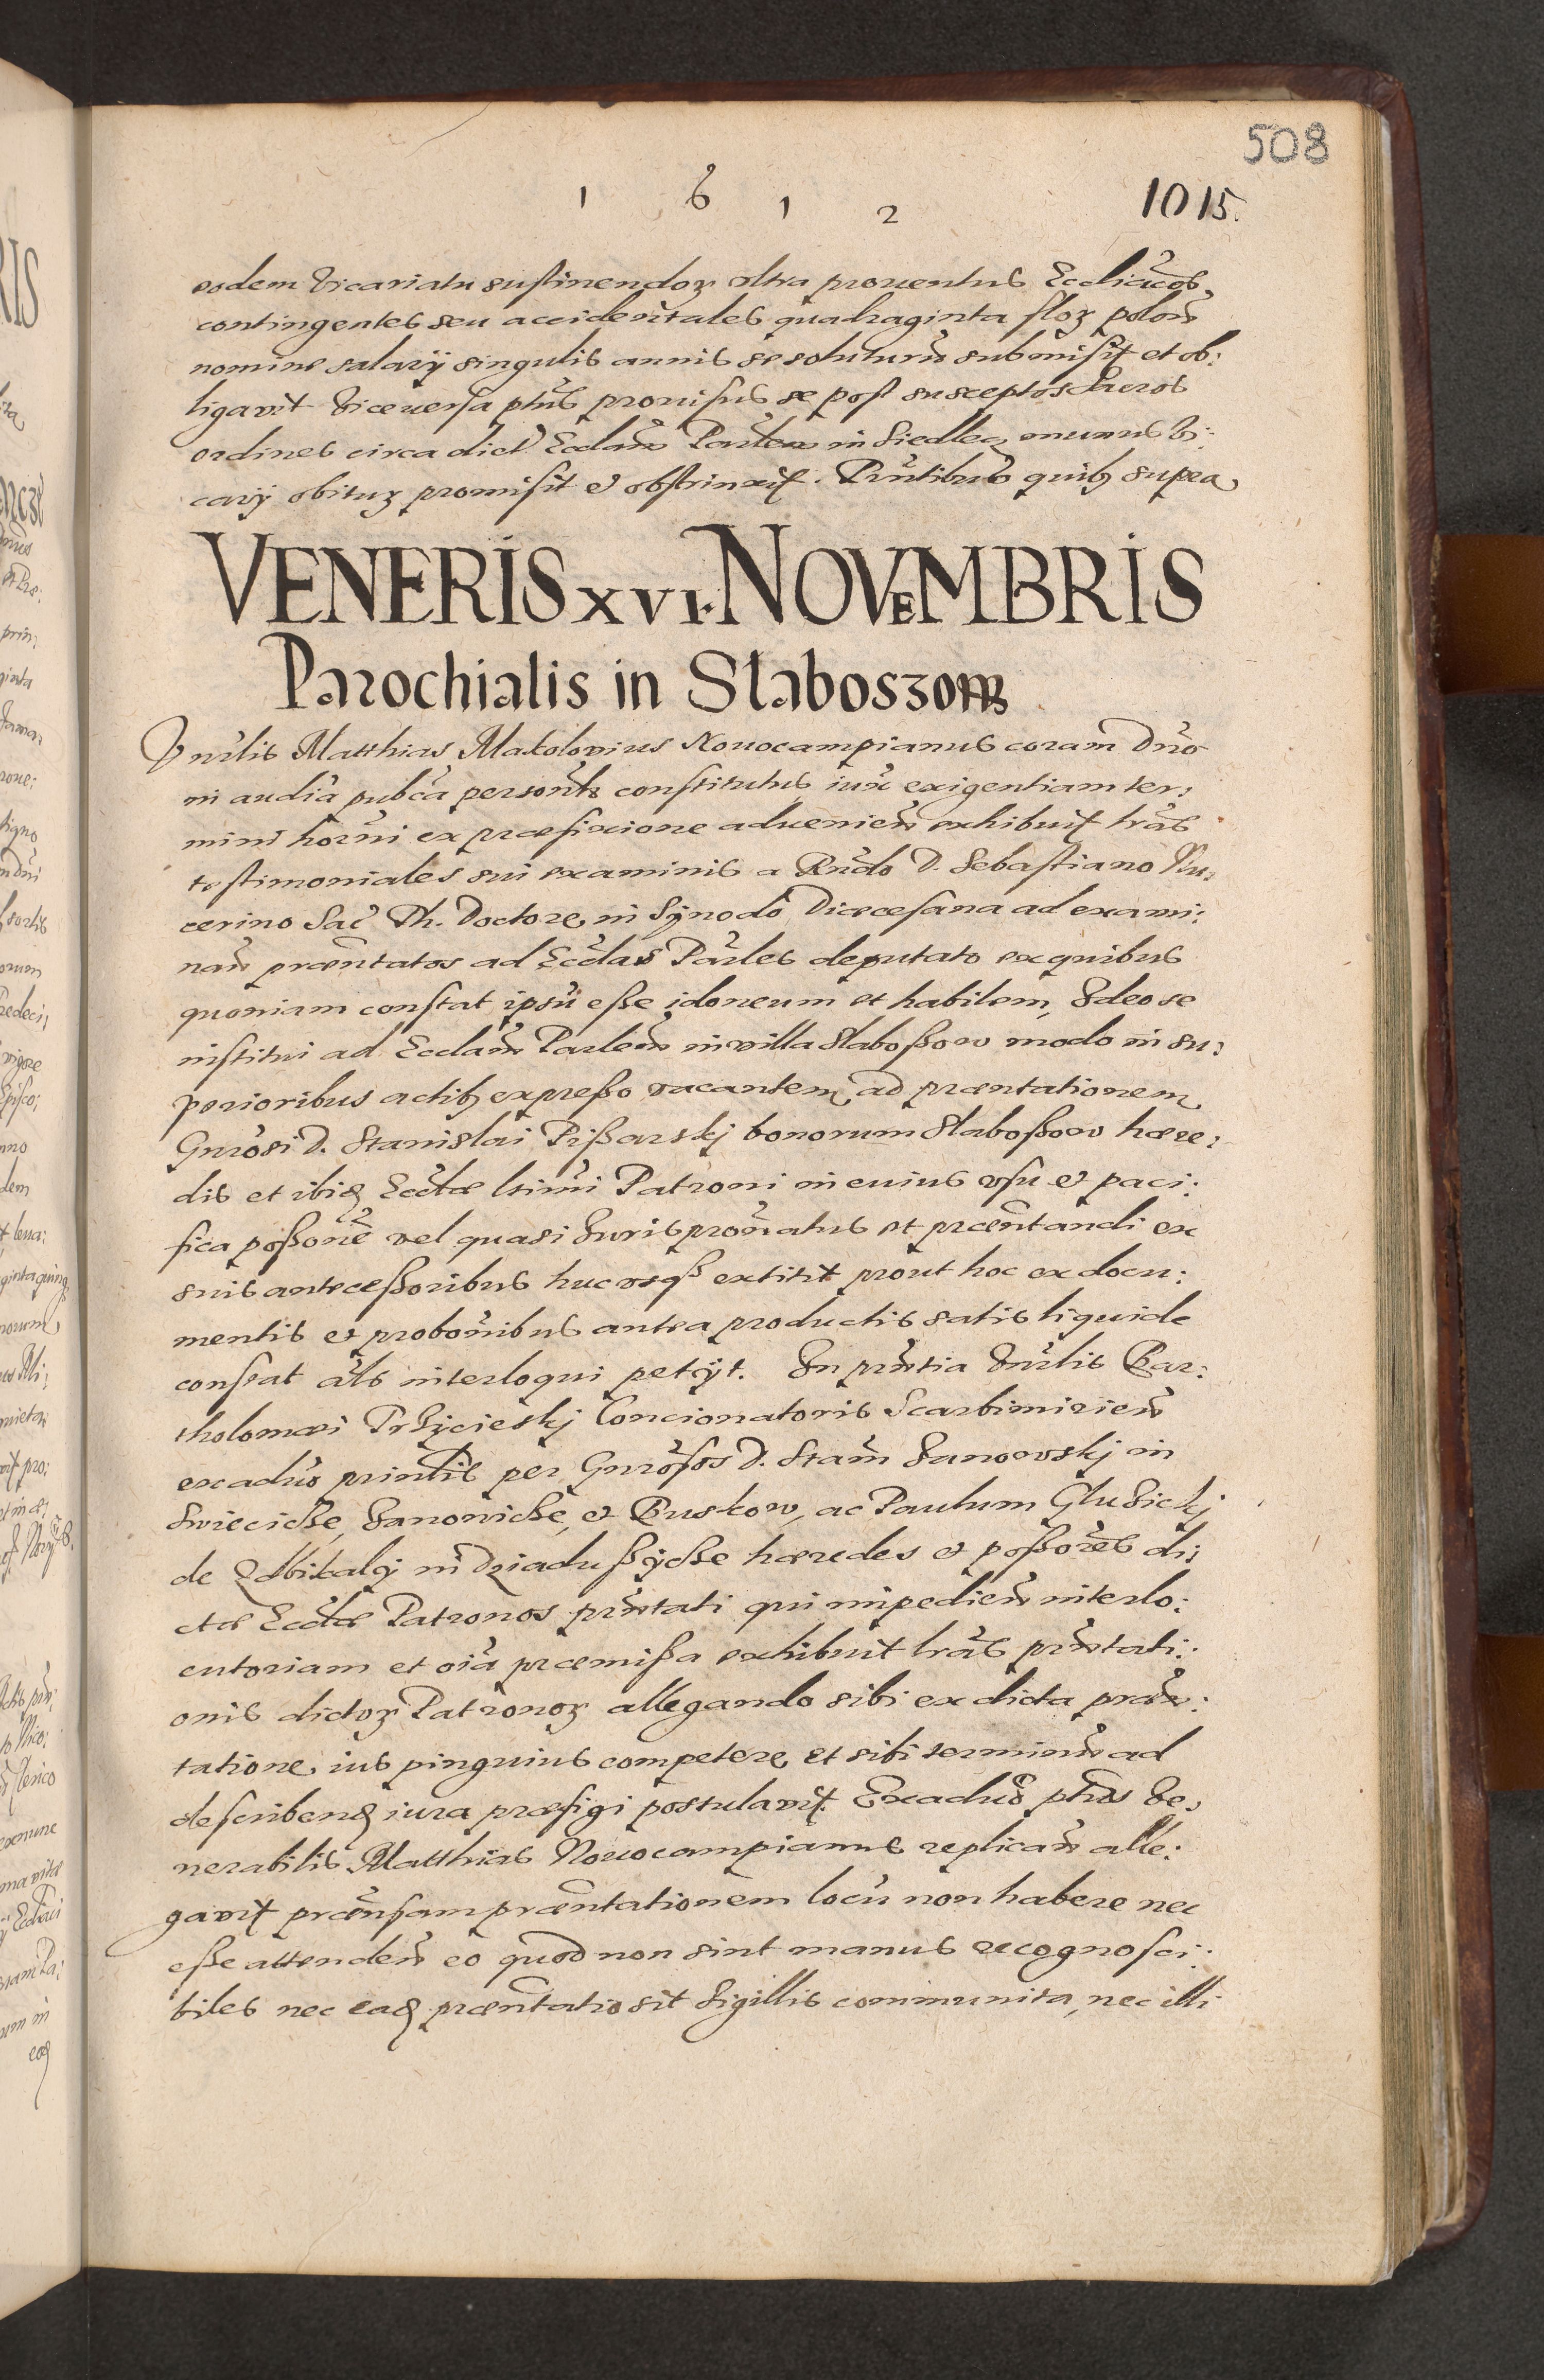 508
1 6 1 2
1015.
eodem Vicariatu sustinendoꝝ vltra prouentus Eccliăcos
contingentes seu accideňtales quadraginta floꝝ poloň
nomine salarÿ singulis annis se soluturů submisit et ob:
ligavit Viceuersa ptŭs prouisus se post susceptos sacros
ordines circa dict Ecclam Parlem in Siedlec munus Vi:
carÿ obituꝝ promisit et obstrinxit. Pňtibus quibꝫ supra
VENERIS XVI. NOVEMBRIS
Parochialis in Slaboszow
Vňrlis Matthias Makolovius Nouocampianus coram Dňo
in audia pubca personlr constitutus iux exigentiam ter:
mini horňi ex præfixione adueniěň exhibuit lrăs
testimoniales sui examinis a Rňdo D. Sebastiano Nu:
cerino Sac Th. Doctore in Synodo Diæcesana ad exami:
nań præňtatos ad Ecclas Parles deputato ex quibus
quoniam constat ipsŭ eße idoneum et habilem, Ideo se
institui ad Ecclam Parlem in villa Slaboßow modo in su:
perioribus actibꝫ expreßo vacantem ad præntationem
Gnrosi D. Stanislai Pißarskj bonorum Slaboßow hære:
dis et ibiꝺ Ecclæ ltimi Patroni in cuius vsu et paci:
fica poßonĕ vel quasi Juris pronatus et præntandi ex
suis anteceßoribus huc vsqꝫ extitit prout hoc ex docu:
mentis et probonibus antea productis satis liquide
constat als interloqui petÿt. In prňtia Vňrlis Bar:
tholomæi Przÿcieskj Concionatoris Scarbimirień
ex aduo prińlis per Gnrosos D. Stań Janowskj in
Swiecicße, Janowicße, et Buskow, ac Paulum Gluzickj
de Zbikaly in Dziadußÿcße hæredes et poßores di:
ctæ Ecclæ Patronos prňtati qui impedień interlo:
cutoriam et oia præmißa exhibuit lras prňtati:
onis dictoꝝ Patronoꝝ allegando sibi ex dicta præn:
tatione ius pinguius competere et sibi terminů ad
describenꝺ iura præfigi postulavit. Ex aduo ptŭs Ve:
nerabilis Matthias Nouocampianus replicań alle:
gavit prænsam præntationem locŭ non habere nec
eße attendeń eo quod non sint manus recognosci:
biles nec eaꝺ præntatio sit sigillis communita, nec illi